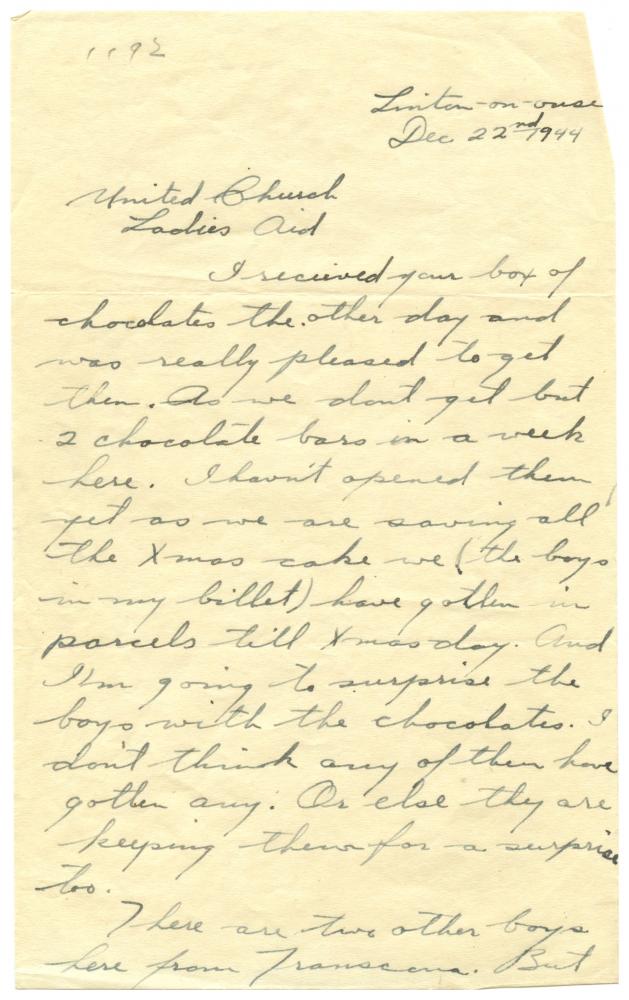 1192
Linton-on-ouse
Dec 22nd 1944
United Church
Ladies Aid
I recieved your box of
chocolates the other day and
was really pleased to get
them. As we dont get but
2 chocolate bars in a week
here. I havn't opened them
yet as we are saving all
the Xmas cake we (the boys
in my billet) have gotten in
parcels till Xmas day. And
I'm going to surprise the
boys with the chocolates. I
don't think any of them have
gotten any. Or else they are
keeping them for a surprise
too.
There are two other boys
here from Transcona. But